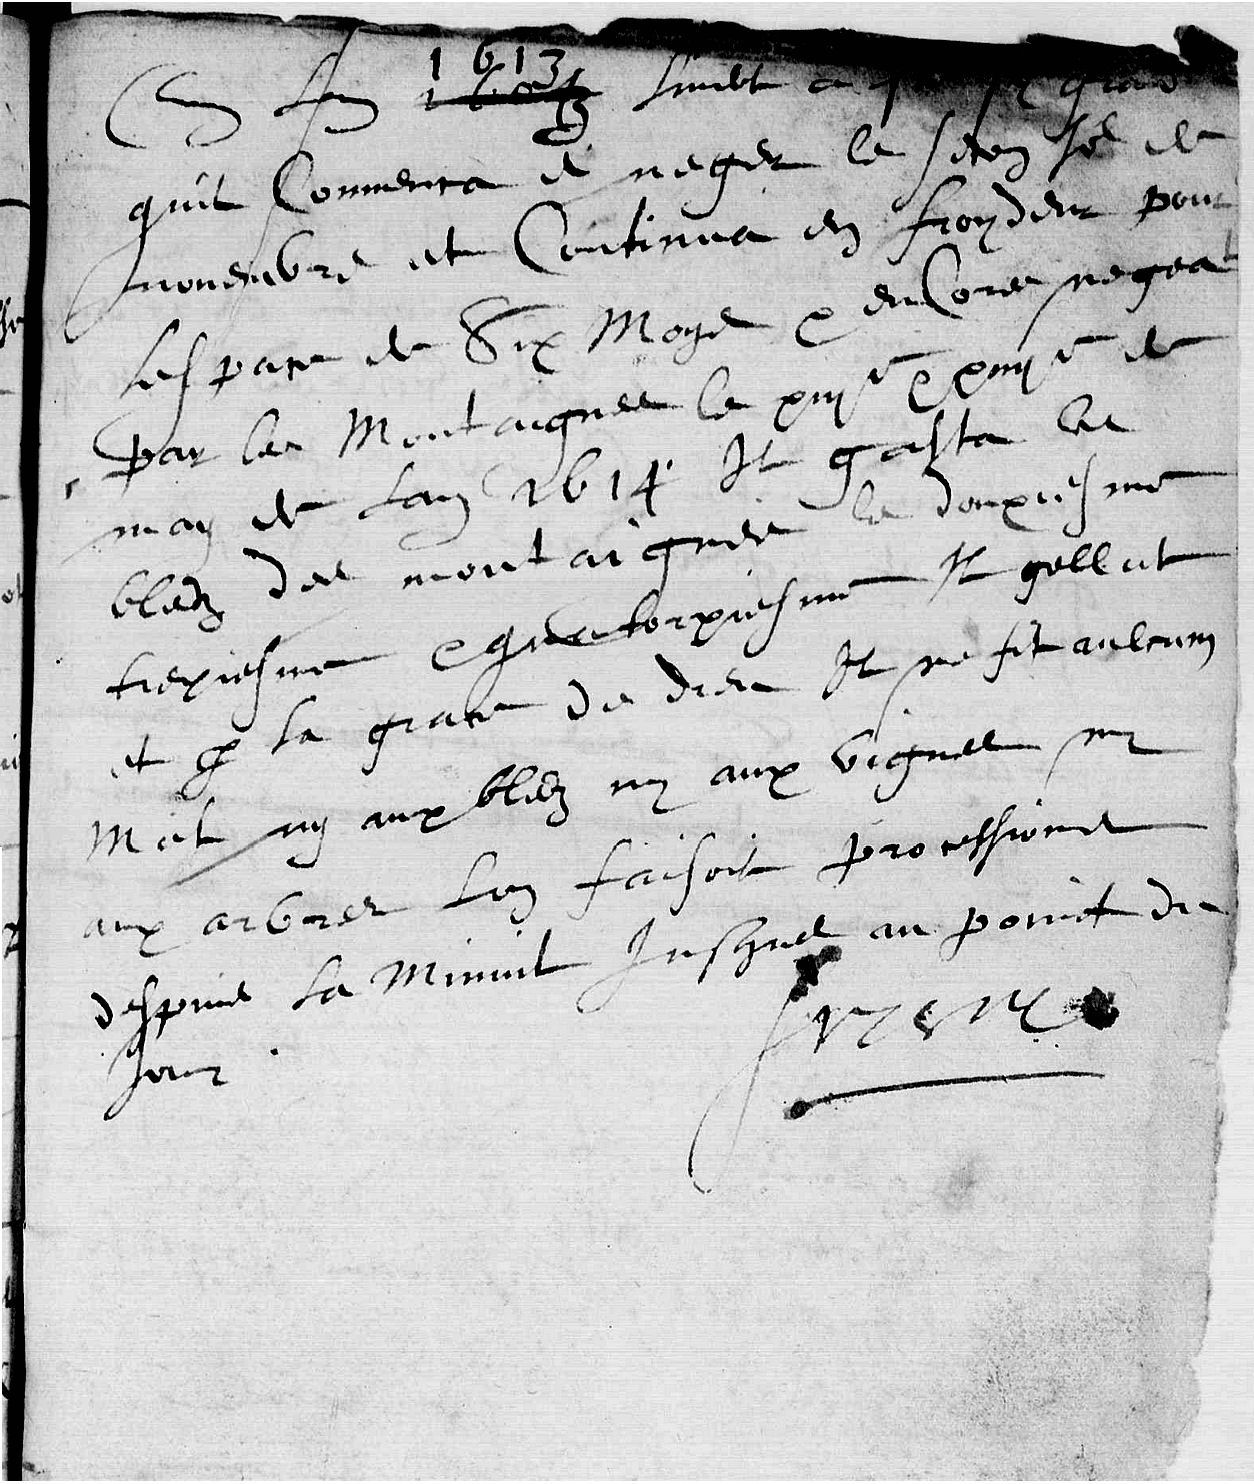 En Lan 1613 Liver a grand
quil Commenca a neger le segon Jor de
novembre et Continua en froydeur pour
Lespace de Six Moys & enCores negea
par les Montaignes le xiiie & xiiiie de
may de Lan 1614 Il gasta les
bledz des montaignes le douxiesme
trexiesme & quatorxiesme Il gellat
et p La grace de dieu Il ne fit aulcung
Mal ny aux bledz ny aux vignes ny
aux arbres Lon faisoit processions
despuis La Minuit Jusques au point du
Jour